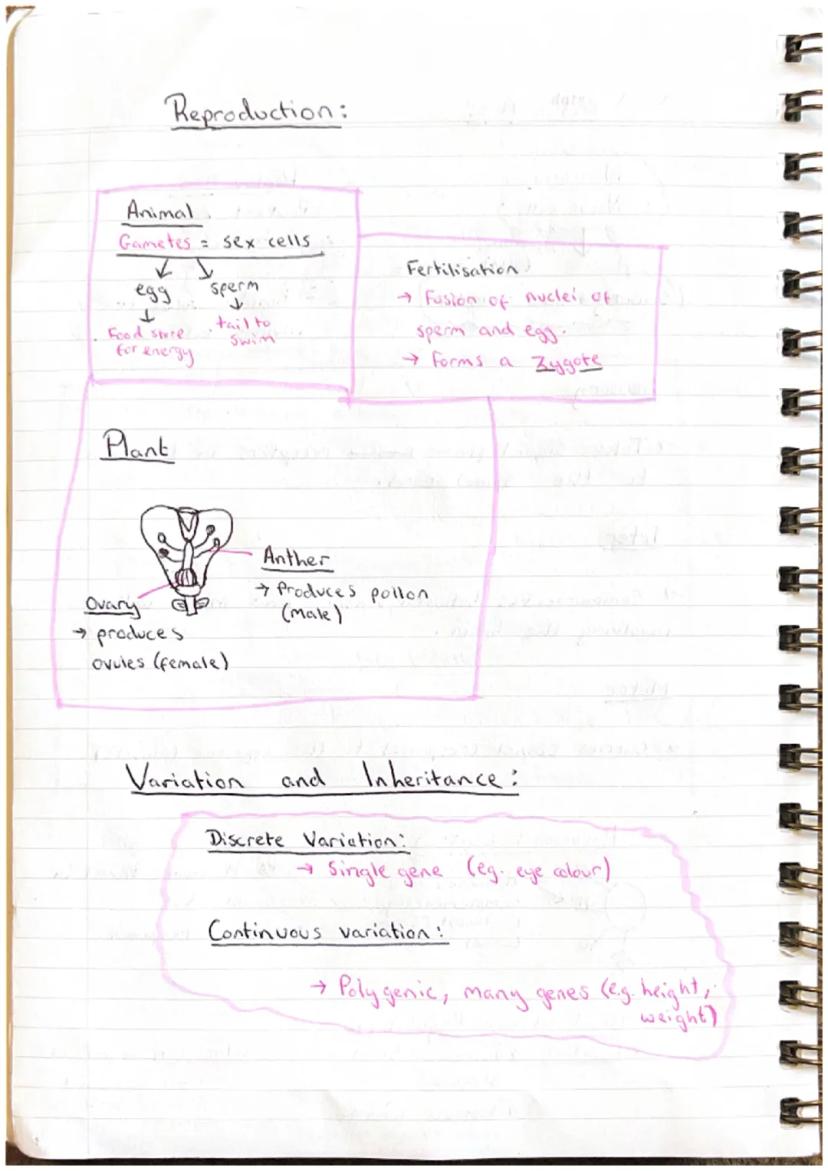 Reproduction:
Animal
Gametes = sex cells
egg
sperm
Food store
for energy
tail to
swim
Fertilisation
→ Fusion of nuclei of
sperm and egg.
→ Forms a Zygote
Plant
Anther
→ Produces pollon
(Male)
Ovary
→ produces
ovules (female)
Variation and Inheritance:
Discrete Variation:
→ Single gene (eg. eye colour)
Continuous variation:
→ Polygenic, many genes (e.g. height,
weight)